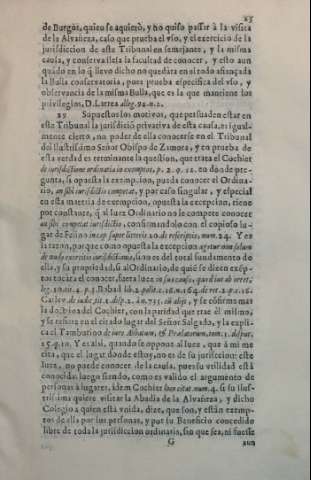 25
de Burgos, quieto se aquietò, y no quiso passar à la visita
de la Alvañeza, caso que prueba el vso, y el exercicio de la
jurisdiccion de este Tribunal en semejante, y la misma
causa, y conservasele la facultad de conocer, y esto aun
quãdo en lo q̃ llevo dicho no quedara en el todo afiançada
la Bulla conservatoria, pues prueba especifica del vso, y
observancia de la misma Bulla, que es la que mantiene los
privilegios, D. Larrea alleg. 92. n. 2.
25 Supuestos los motivos, que persuaden estar en
este Tribunal la jurisdiciõ privativa de esta causa, es igual-
mente cierto, no poder de ella conocerse en el Tribunal
del Ilustrissimo Señor Obispo de Zamora, y en prueba de
esta verdad es terminante la question, que trata el Cochier
de iurisdictione ordinaria in exemptos, p. 2. q. 12. en dõde pre-
gunta, si opuesta la exempcion, pueda conocer el Ordina-
rio, an sibi iurisdictio competat, y por caso singular, y especial
en esta materia de exempcion, opuesta la excepcion, tiene
por constante, q̃ al Iuez Ordinario no le compete conocer
an sibi competat iurisdictio, confirmandolo con el copioso lu-
gar de Felino in cap. super litteris 20. de rescriptis, num. 24. Y es
la razon, porque como opuesta la excepcion agetur non solum
de nudo exercitio iurisdictionis, sino es del total fundamento de
ella, y su propriedad, si al Ordinario, de quiẽ se dicen exẽp-
tos tocara el conocer, fuera Iuez in sua causa,
Carlev. de iudic. tit. 1. disp. 2. à n. 735. ubi alijs, y se confirma mas
la doctrina del Cochier, con la paridad que trae èl mismo,
y se refiere en el citado lugar del Señor Salgado, y la expli-
ca el Tamburino de iure Abbatum, & Prælatorum, tom. 1. disput.
15. q. 10. Y es assi, quando se oppone al Iuez, que à mi me
cita, que el lugar donde estoy, no es de su jurisdiccion: este
Iuez, no puede conocer de la causa, pues su vtilidad està
conocida: luego siendo, como es valido el argumento de
personas à lugares, idem Cochier hoc citat. num. 4. si su Ilus-
trissima quiere visitar la Abadia de la Alvañeza, y dicho
Colegio à quien està vnida, dize, que son, y estàn exemp-
tos de ella por las personas, y por su Beneficio concedido
libre de toda la jurisdiccion ordinaria, sin que sea, ni fuesse
G
aun